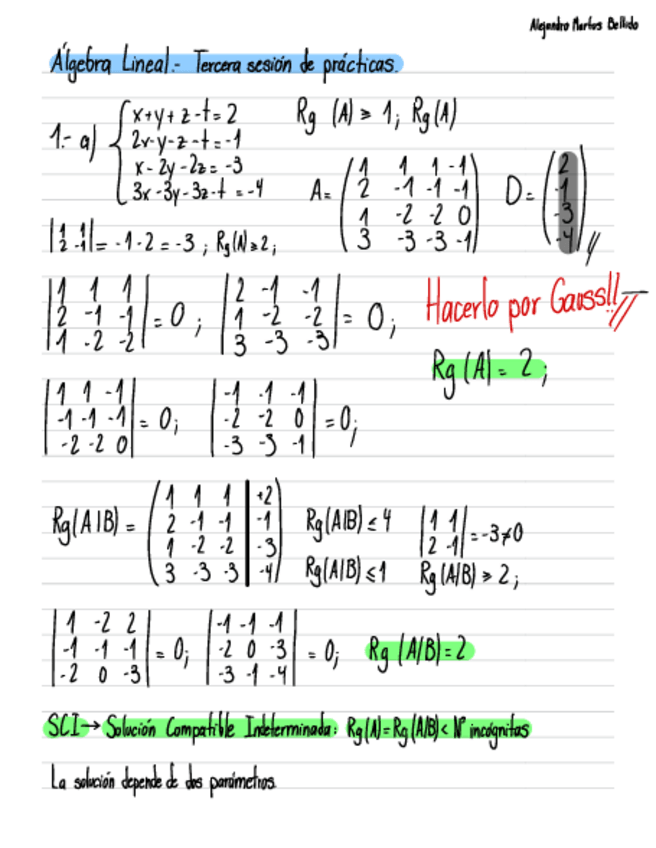 Alejandro Martos Bellido
Álgebra Lineal.- Tercera sesión de prácticas.
1.- a) { x+y+z-t=2 Rg (A) ≥ 1; Rg(A)
2x-y-z-t=-1
x-2y-2z=-3
3x-3y-3z-t=-4
A= ( 1 1 1 -1 D= ( 2
2 -1 -1 -1 -1
1 -2 -2 0 -3
3 -3 -3 -1 ) -4 )
|1 1
2 -1| = -1-2 = -3; Rg(A)≥2;
|1 1 1
2 -1 -1
1 -2 -2| = 0;
|2 -1 -1
1 -2 -2
3 -3 -3| = 0;
Hacerlo por Gauss!!
Rg (A| = 2;
|1 1 -1
-1 -1 -1
-2 -2 0| = 0;
|-1 -1 -1
-2 -2 0
-3 -3 -1| = 0;
Rg(A|B) = ( 1 1 1 | +2
2 -1 -1 | -1
1 -2 -2 | -3
3 -3 -3 | -4 )
Rg(A|B) ≤ 4
Rg(A|B) ≤ 1
|1 1
2 -1| = -3≠0
Rg (A/B) ≥ 2;
|1 -2 2
-1 -1 -1
-2 0 -3| = 0;
|-1 -1 -1
-2 0 -3
-3 -1 -4| = 0;
Rg (A/B) = 2
SCI → Solución Compatible Indeterminada: Rg(A) = Rg(A/B) < Nº incógnitas
La solución depende de dos parámetros.